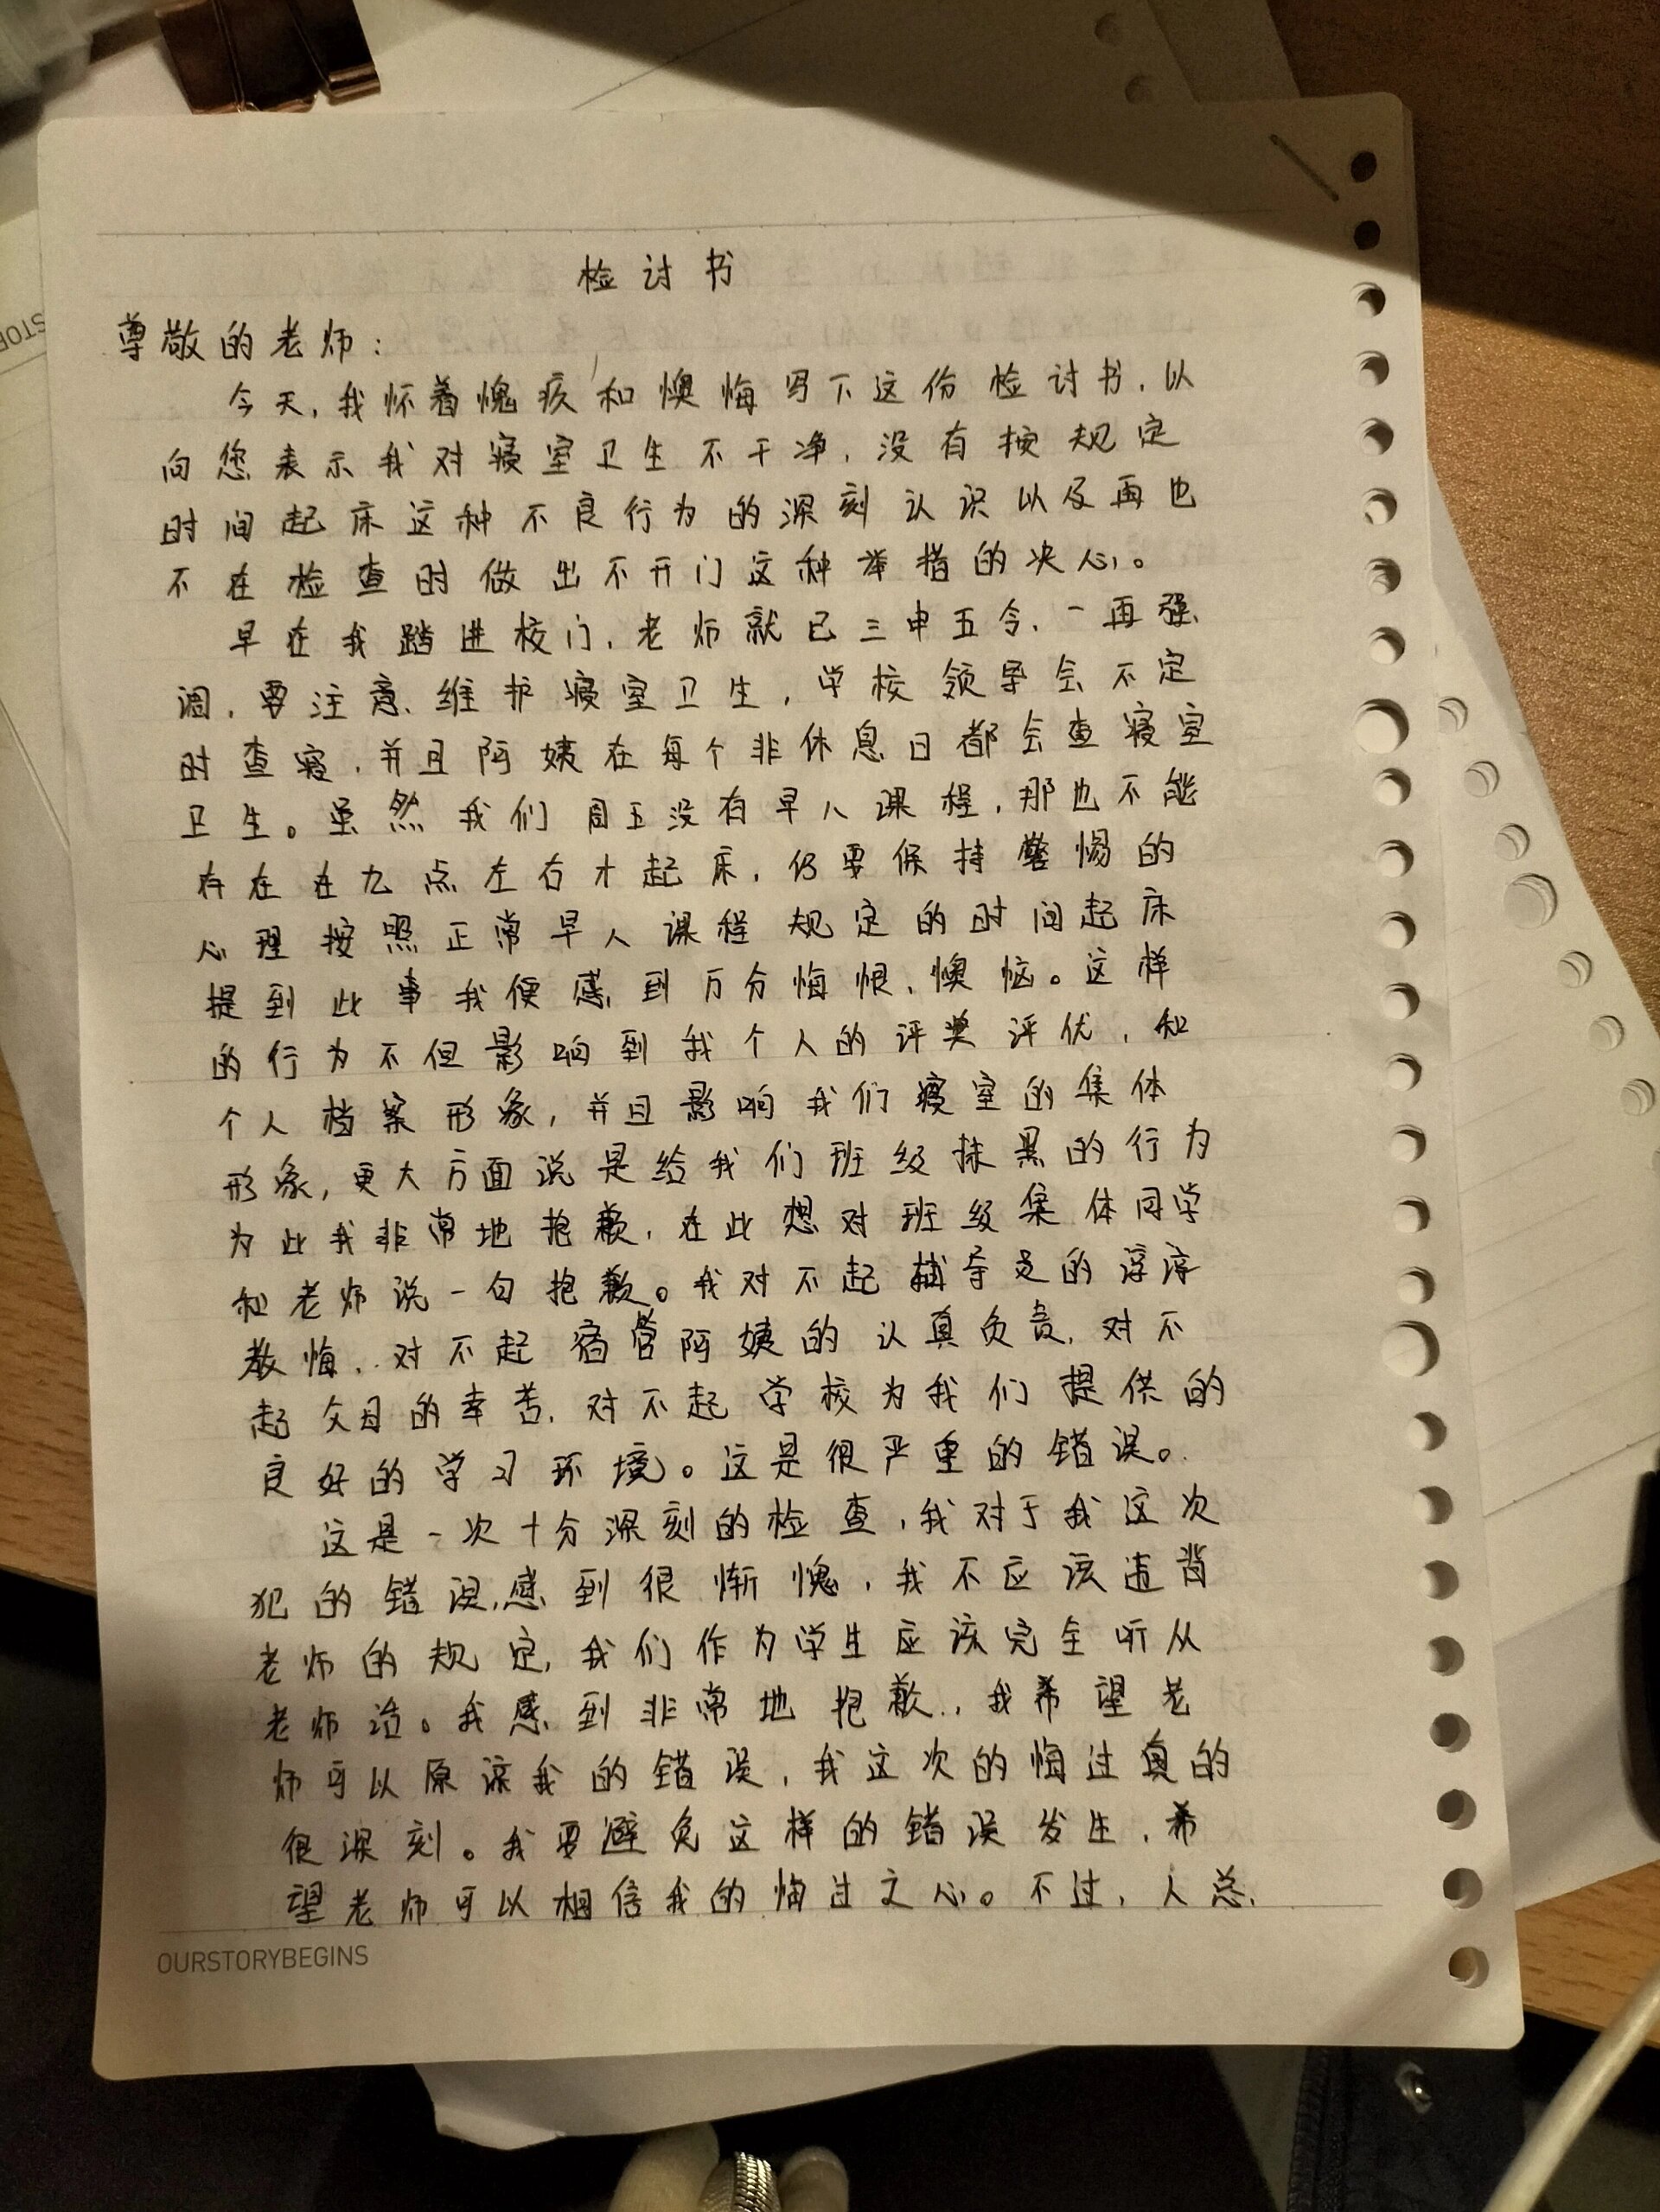 检讨书
尊敬的老师：
今天，我怀着愧疚和懊悔写下这份检讨书，以
向您表示我对寝室卫生不干净，没有按规定
时间起床这种不良行为的深刻认识以及再也
不在检查时做出不开门这种举措的决心。
早在我踏进校门，老师就已三申五令，一再强
调，要注意维护寝室卫生，学校领导会不定
时查寝，并且阿姨在每个非休息日都会查寝室
卫生。虽然我们周五没有早八课程，那也不能
存在在九点左右才起床，仍要保持警惕的
心理按照正常早八课程规定的时间起床
提到此事我便感到万分悔恨、懊恼。这样
的行为不但影响到我个人的评奖评优，和
个人档案形象，并且影响我们寝室的集体
形象，更大方面说是给我们班级抹黑的行为
为此我非常地抱歉，在此想对班级集体同学
和老师说一句抱歉。我对不起辅导员的谆谆
教悔，对不起宿管阿姨的认真负责，对不
起父母的辛苦，对不起学校为我们提供的
良好的学习环境。这是很严重的错误。
这是一次十分深刻的检查，我对于我这次
犯的错误，感到很惭愧，我不应该违背
老师的规定，我们作为学生应该完全听从
老师话。我感到非常地抱歉，我希望老
师可以原谅我的错误，我这次的悔过真的
很深刻。我要避免这样的错误发生，希
望老师可以相信我的悔过之心。不过，人总
OURSTORYBEGINS